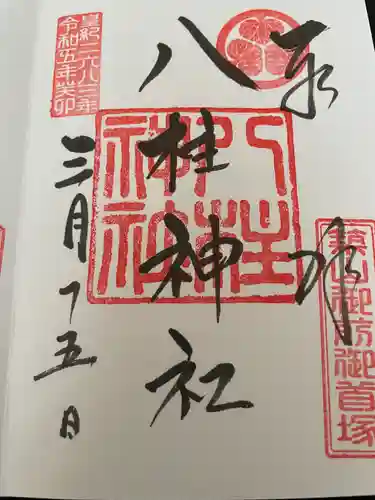 奉拝
築山御前御首塚
八柱神社
八柱神社
皇紀二六八三年
令和五年癸卯
三月十五日